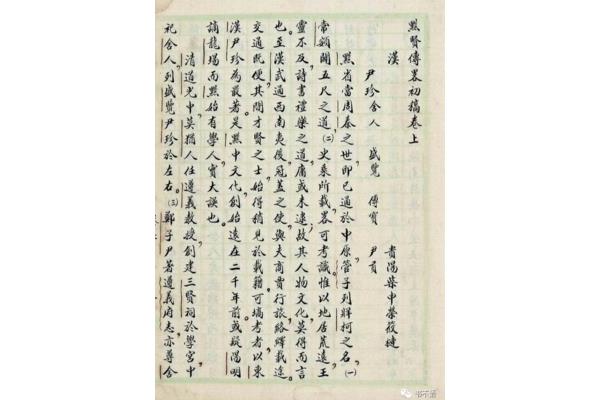 黔賢傳畧初稿卷上
漢
貴陽柴中榮筱
尹珍舍人 盛覽 傅寳 尹貢
黔省當周秦之世，即已通於中原，管子列牂柯之名，(一)
常頞開五尺之道，(二)史乘所載，畧可考識，惟以地居荒遠，王
靈不及，詩書禮樂之道，庸或未逮，故其人物文化，莫得而言
也。至漢武通西南夷後，冠蓋之使，與夫商賈行旅，絡繹載途。
交通既便，其間才賢之士，始得稍見於載籍，可搞考者，以東
漢尹珍為最著，是黔中文化創始，遠在二千年前，或疑陽明
謫龍場而黔始有學人，實大誤也。
清道光中，莫猶人任遵義教授，創建三賢祠於學宮中，
祀舍人，列盛覽尹珍於左右。(三)鄭子尹著遵義府志，亦尊舍